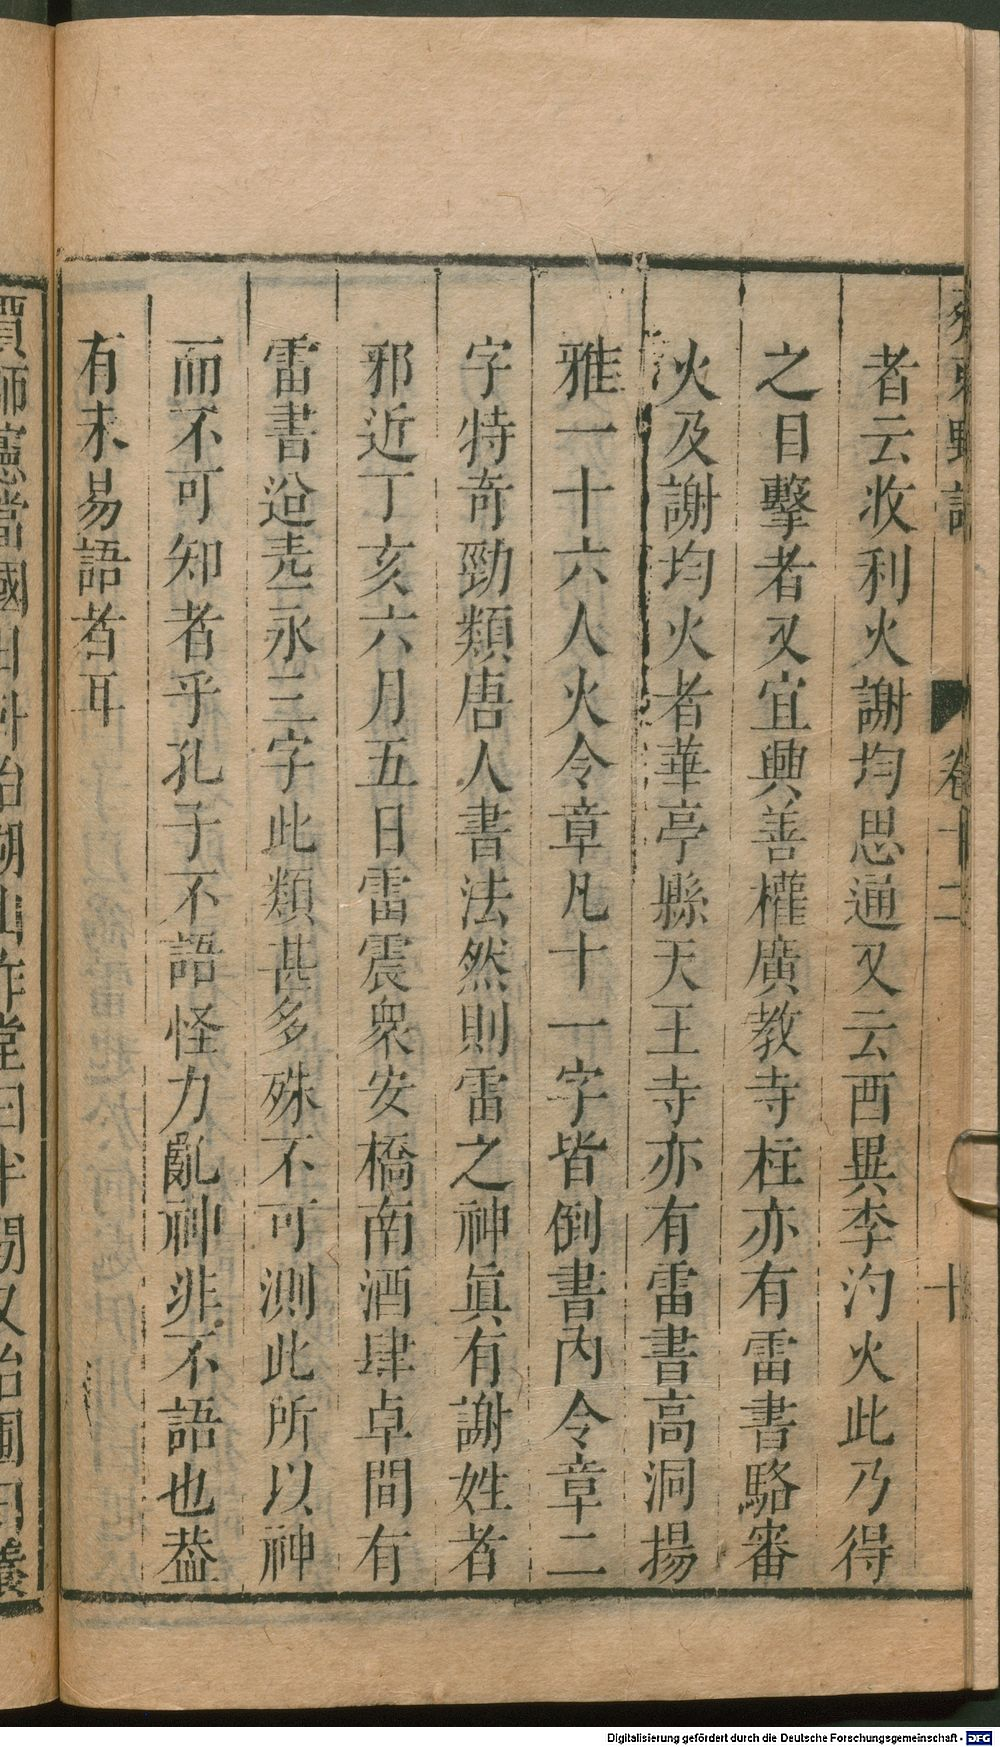 齊東野語 卷十二 十
者云收利火謝均思通又云酉異李汋火此乃得
之目擊者又宜興善權廣教寺柱亦有雷書駱審
火及謝均火者華亭縣天王寺亦有雷書高洞揚
雅一十六人火令章凡十一字皆倒書內令章二
字特奇勁類唐人書法然則雷之神眞有謝姓者
邪近丁亥六月五日雷震衆安橋南酒肆卓間有
雷書迨永三字此類甚多殊不可測此所以神
而不可知者乎孔子不語怪力亂神非不語也葢
有未易語者耳
賈師憲當國日卧治湖山作堂曰半閒又治圃曰養
Digitalisierung gefördert durch die Deutsche Forschungsgemeinschaft - DFG